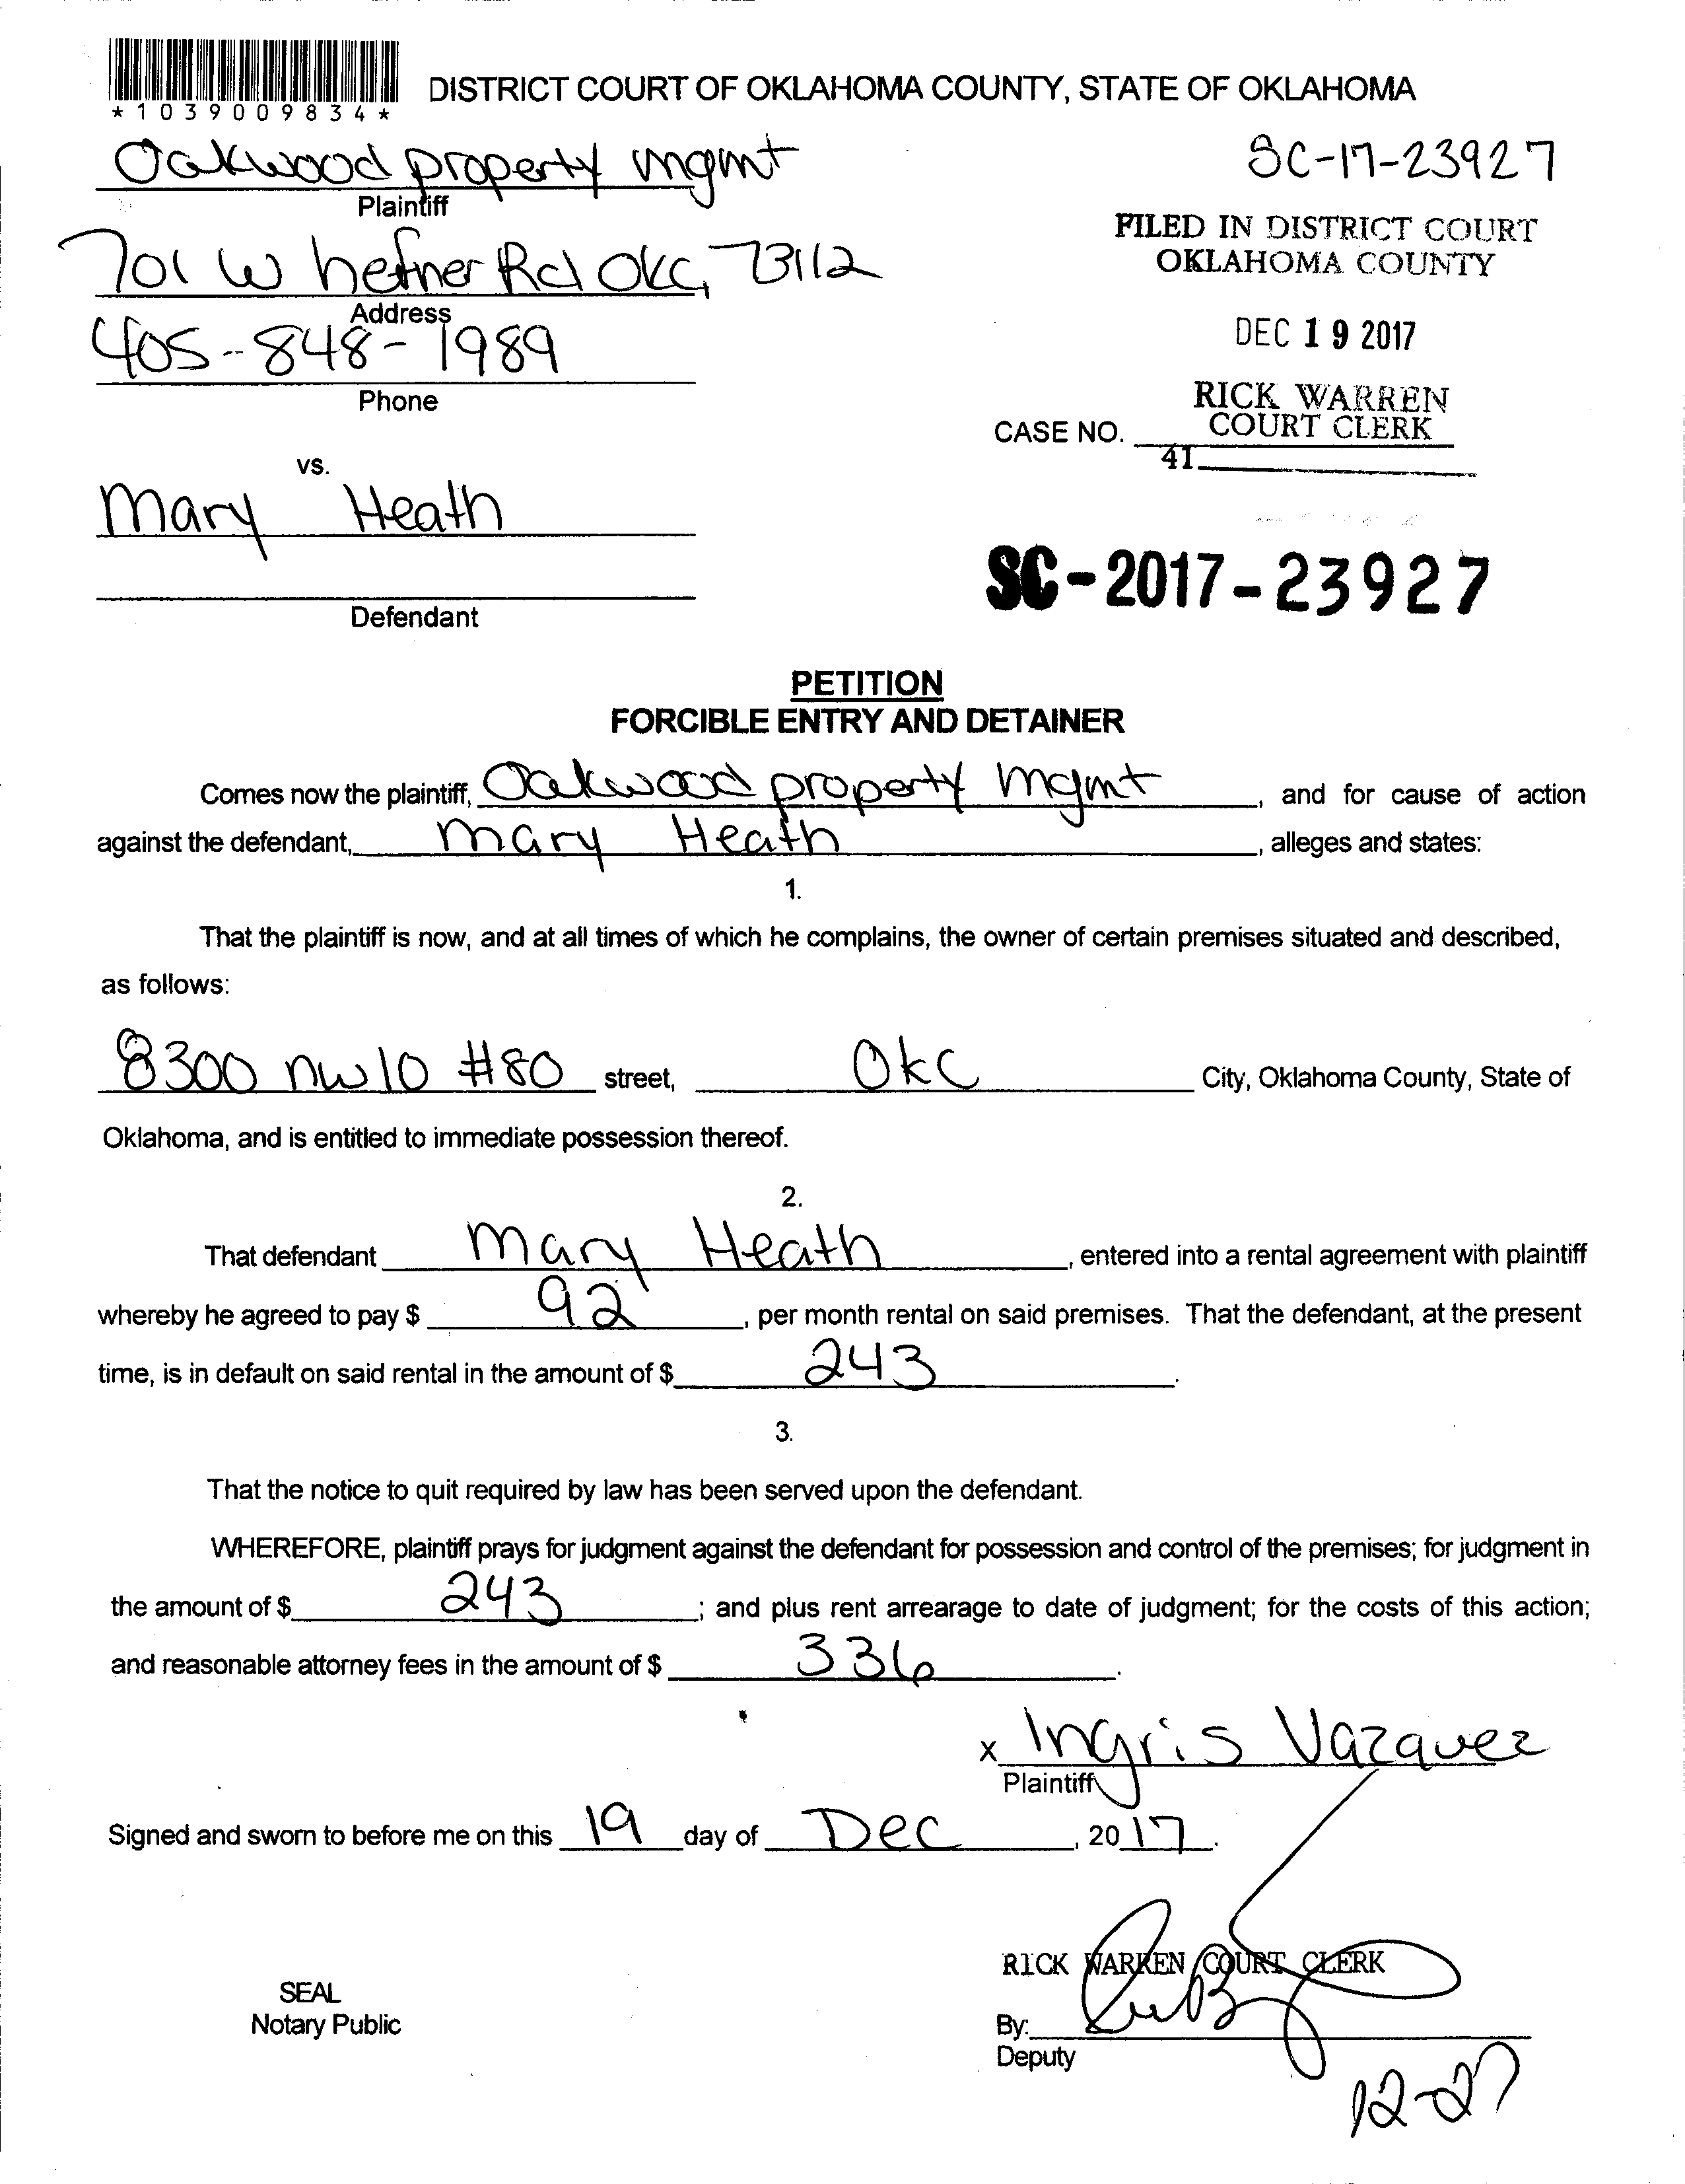 *1039009834*
DISTRICT COURT OF OKLAHOMA COUNTY, STATE OF OKLAHOMA
Oakwood property mgmt
Plaintiff
SC-17-23927
FILED IN DISTRICT COURT
OKLAHOMA COUNTY
701 W hefner Rd OKC, 73112
Address
DEC 19 2017
405-848-1989
Phone
RICK WARREN
COURT CLERK
CASE NO.
41
vs.
Mary Heath
SC-2017-23927
Defendant
PETITION
FORCIBLE ENTRY AND DETAINER
Comes now the plaintiff, Oakwood property mgmt, and for cause of action
against the defendant, Mary Heath, alleges and states:
1.
That the plaintiff is now, and at all times of which he complains, the owner of certain premises situated and described,
as follows:
8300 nw 10 #80 street, OkC City, Oklahoma County, State of
Oklahoma, and is entitled to immediate possession thereof.
2.
That defendant Mary Heath, entered into a rental agreement with plaintiff
whereby he agreed to pay $ 92, per month rental on said premises. That the defendant, at the present
time, is in default on said rental in the amount of $ 243.
3.
That the notice to quit required by law has been served upon the defendant.
WHEREFORE, plaintiff prays for judgment against the defendant for possession and control of the premises; for judgment in
the amount of $ 243; and plus rent arrearage to date of judgment; for the costs of this action;
and reasonable attorney fees in the amount of $ 336.
x Ingris Vazquez
Plaintiff
Signed and sworn to before me on this 19 day of Dec, 2017.
RICK WARREN COURT CLERK
SEAL
Notary Public
By:
Deputy
12-27